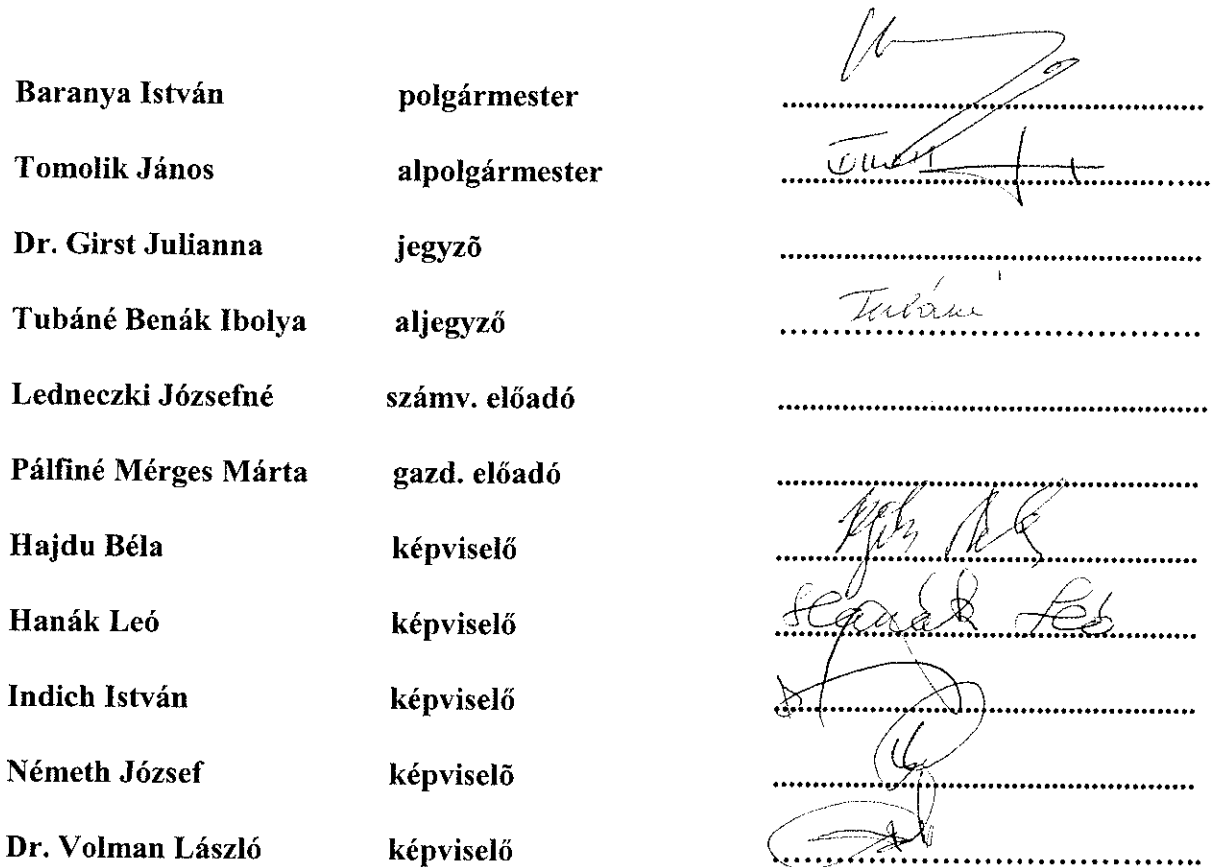 Baranya István polgármester
Tomolik János alpolgármester
Dr. Girst Julianna jegyzõ
Tubáné Benák Ibolya aljegyző Tubáné
Ledneczki Józsefné számv. előadó
Pálfiné Mérges Márta gazd. előadó
Hajdu Béla képviselő
Hanák Leó képviselő Hanák Leó
Indich István képviselő
Németh József képviselõ
Dr. Volman László képviselő